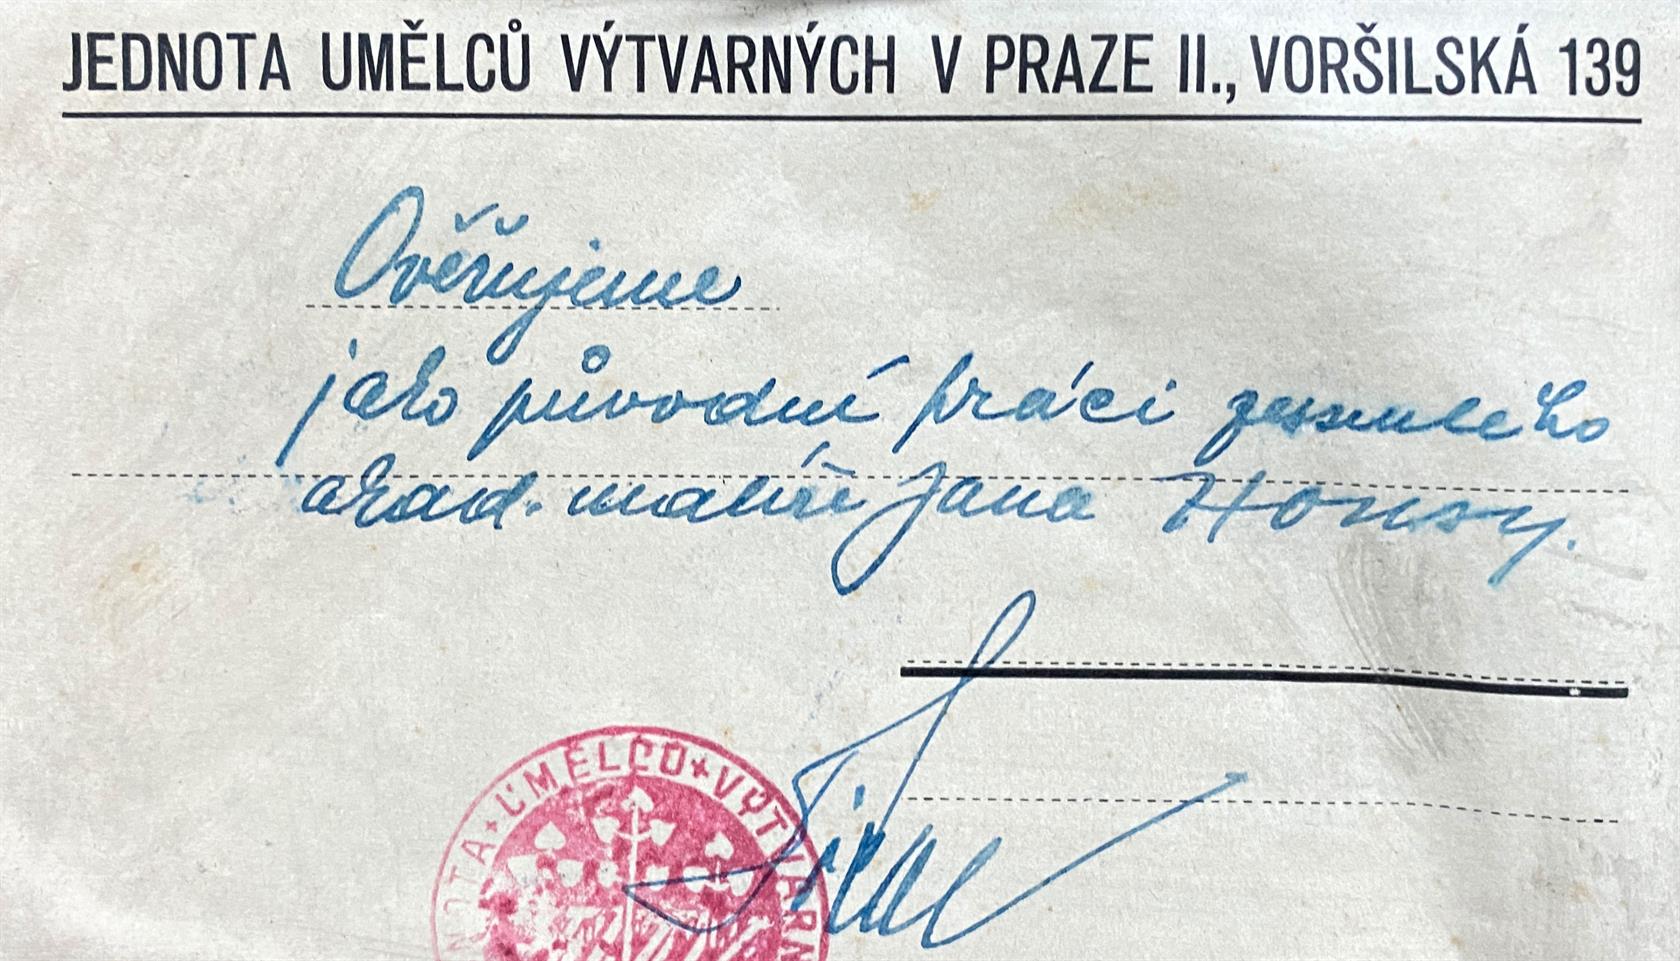 JEDNOTA UMĚLCŮ VÝTVARNÝCH V PRAZE II., VORŠILSKÁ 139
Ověřujeme
jako původní práci zesnulého
akad. malíře Jana Honsy.
JEDNOTA UMĚLCŮ VÝTVARN